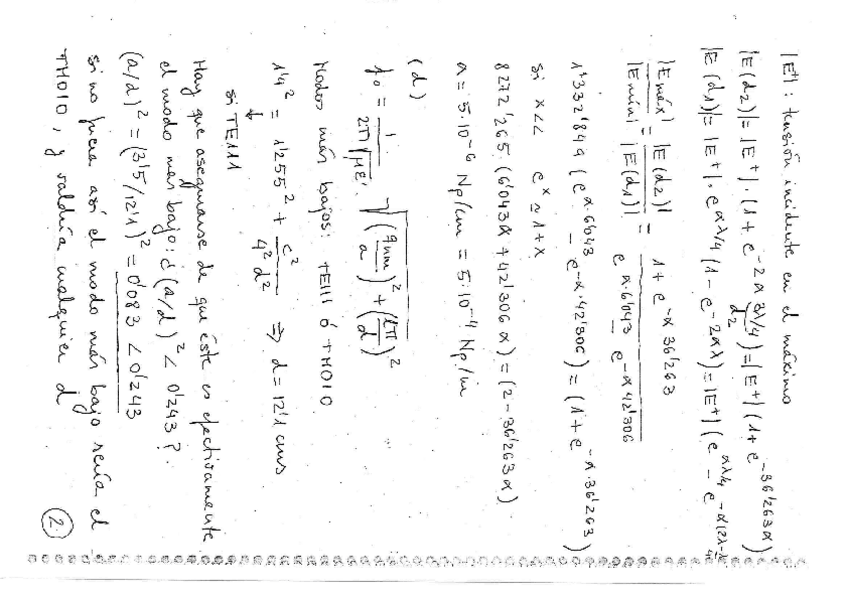 |E⁺|: tensión incidente en el máximo
|E(d2)| = |E⁺|·(1 + e^{-2α 3λ/4}) = |E⁺|(1 + e^{-36'263α})
d2
|E(d1)| = |E⁺|·e^{αλ/4}(1 - e^{-2αλ}) = |E⁺|(e^{αλ/4} - e^{-α(2λ-λ/4)})
|Emáx|/|Emín| = |E(d2)|/|E(d1)| = (1 + e^{-α36'263})/(e^{α·6'043} - e^{-α42'306})
1'332'849 (e^{α·6'043} - e^{-α·42'306}) = (1 + e^{-α·36'263})
si x<< e^x ≃ 1+x
8272'265·(6'043α + 42'306α) = (2 - 36'263α)
a = 5·10⁻⁶ Np/cm = 5·10⁻⁴ Np/m
(d)
f₀ = 1/(2π√με) √((qnm/a)² + (lπ/d)²)
Modos más bajos: TE111 ó TM010
1'4² = 1'255² + c²/(4²d²) ⇒ d = 12'1 cms
↓
si TE111
Hay que asegurarse de que éste es efectivamente
el modo más bajo: ¿(a/d)² < 0'243?
(a/d)² = (3'5/12'1)² = 0'083 < 0'243
si no fuera así el modo más bajo sería el
TM010, y valdría cualquier d
2.